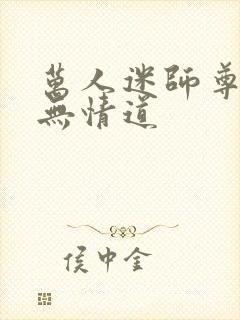 萬人迷師尊
無情道
侯中金